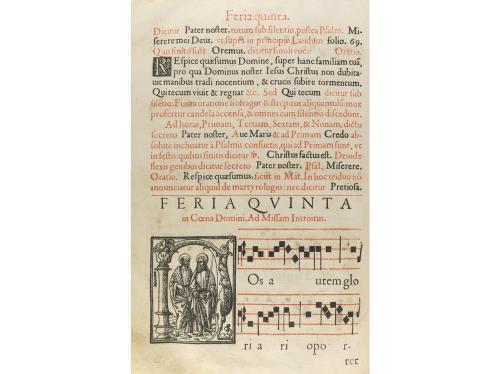 Feria quinta.
Dicitur Pater noster. totum sub silentio, postea Psalm. Mi-
serere mei Deus. ve supra in principio Laudum folio. 69.
Quo finito sine Oremus. dicitur simili voce Oratio.
REspice quæsumus Domine, super hanc familiam tuã,
pro qua Dominus noster Iesus Christus non dubita-
uit manibus tradi nocentium, & crucis subire tormentum.
Qui tecum viuit & regnat &c. Sed Qui tecum dicitur sub
silentio. Finita oratione fit fragor & strepitus aliquantulũ: mox
profertur candela accensa, & omnes cum silentio discedunt.
Ad horas, Primam, Tertiam, Sextam, & Nonam, dictis
secreto Pater noster, Aue Maria & ad Primam Credo ab-
solute inchoatur à Psalmis consuetis, qui ad Primam sunt, vt
in festis: quibus finitis dicitur ℣. Christus factus est. Deinde
flexis genibus dicitur secreto Pater noster. Psal. Miserere.
Oratio. Respice quæsumus. sicut in Mat. In hoc triduo nõ
annunciatur aliquid de martyrologio: nec dicitur Pretiosa.
FERIA QVINTA
in Cœna Domini. Ad Missam Introitus.
N
Os a utem glo
ria ri opo r-
tet